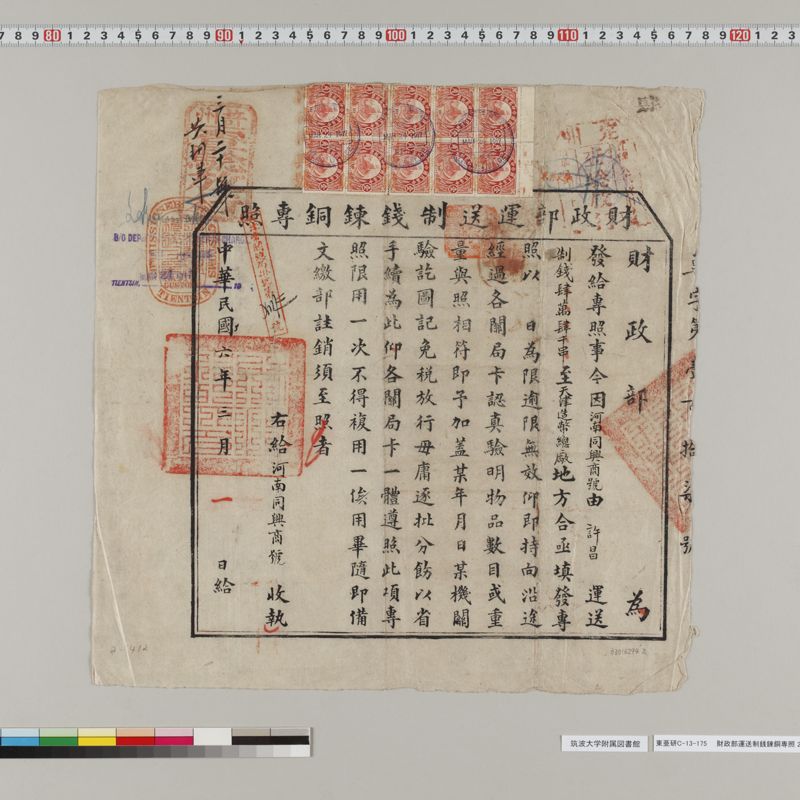 財政部運送制錢鍊銅專照
財政部 為
發給專照事今因河南同興商號由許昌運送
制錢肆萬肆千串至天津造幣總廠地方合亟填發專
照以 日為限逾限無效仰即持向沿途
經過各關局卡認真驗明物品數目或重
量與照相符即予加蓋某年月日某機關
驗訖圖記免稅放行毋庸逐批分飭以省
手續為此仰各關局卡一體遵照此項專
照限用一次不得複用一俟用畢隨即備
文繳部註銷須至照者
右給河南同興商號 收執
中華民國六年三月 一 日給
TIENTSIN
筑波大学附属図書館
東亜研C-13-175 財政部運送制銭錬銅専照